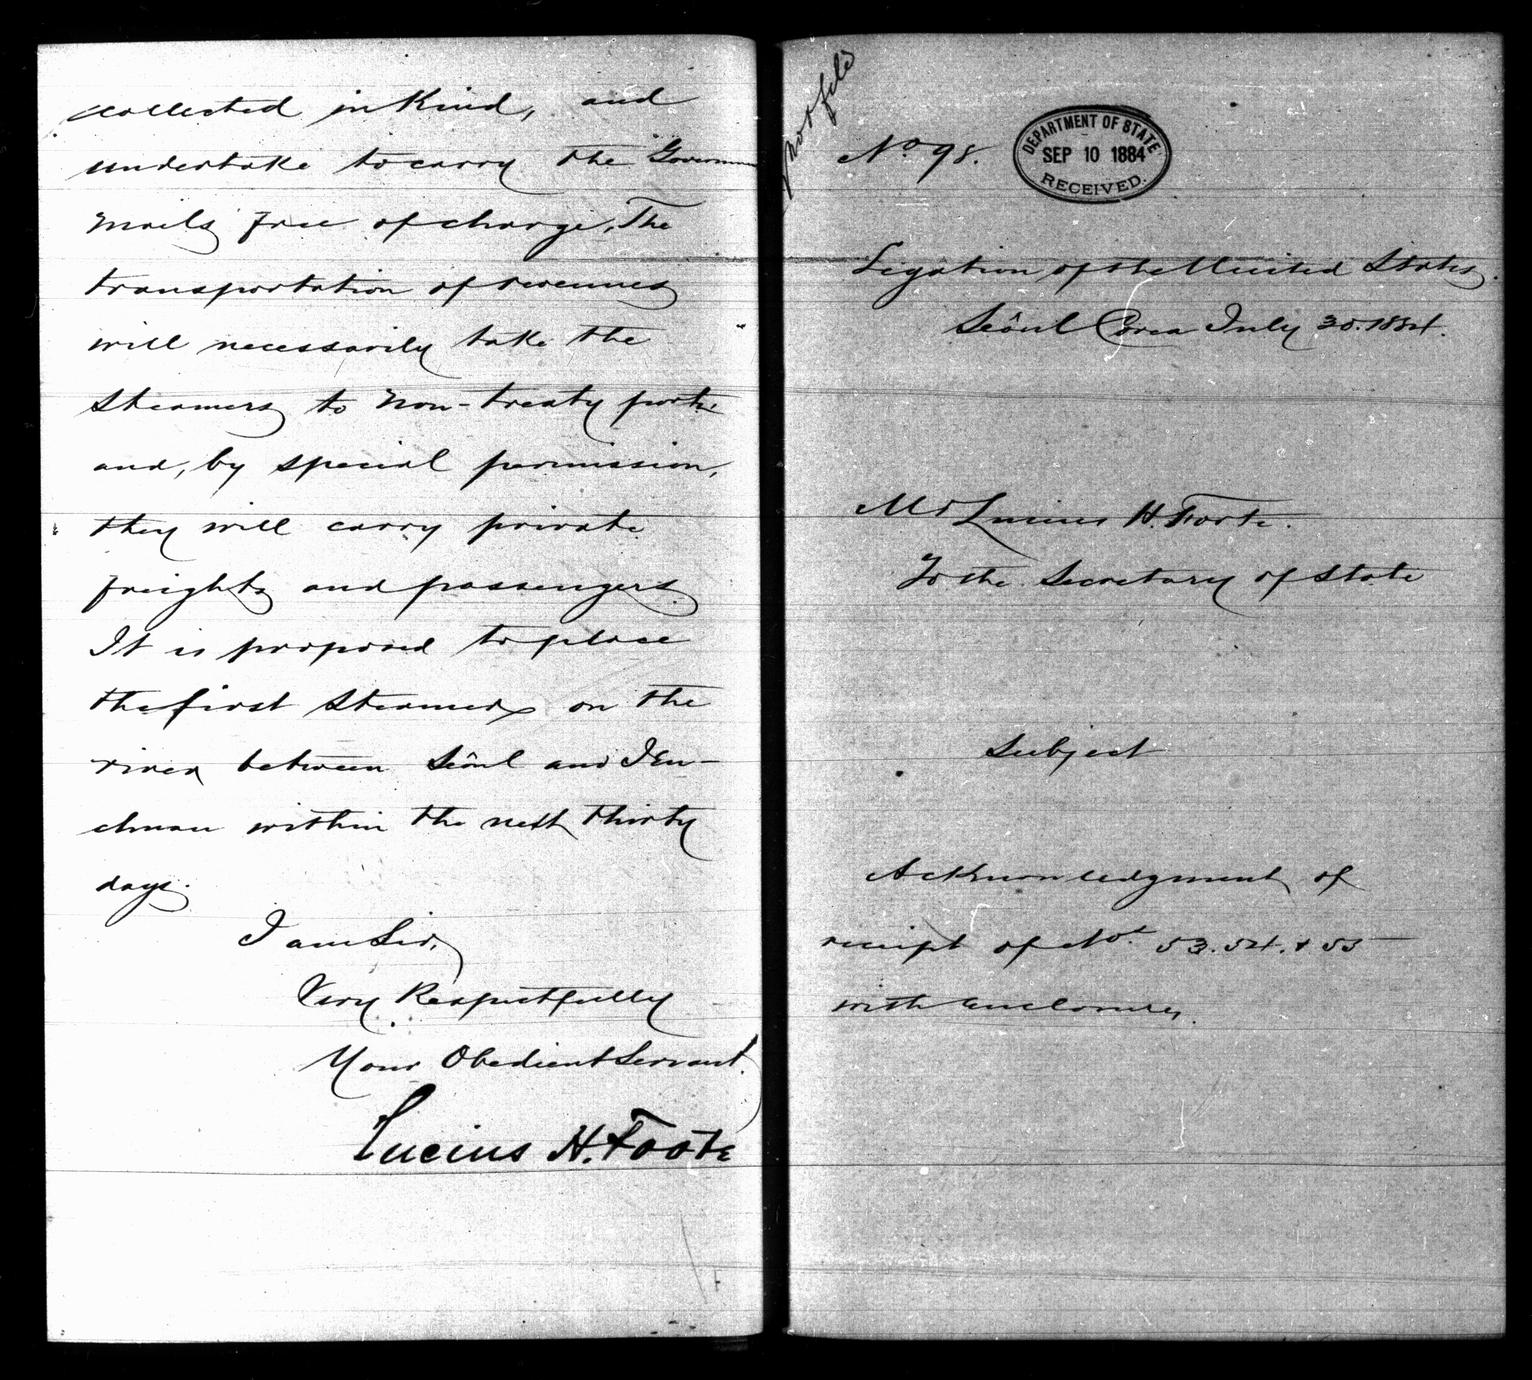 collected in Kind, and
undertake to carry the Governm
mails free of charge. The
transportation of revenues
will necessarily take the
steamers to non-treaty ports
and, by special permission,
they will carry private
freights and passengers.
It is proposed to place
the first steamer on the
river between Seôul and Jen-
chuan within the next thirty
days.
I am Sir,
Very Respectfully
Your Obedient Servant.
Lucius H. Foote
No 98.
DEPARTMENT OF STATE
SEP 10 1884
RECEIVED.
Legation of the United States.
Seôul Corea July 30. 1884.
Mr Lucius H. Foote.
To the Secretary of State
Subject
Acknowledgment of
receipt of Nos. 53. 54. & 55
with enclosures.